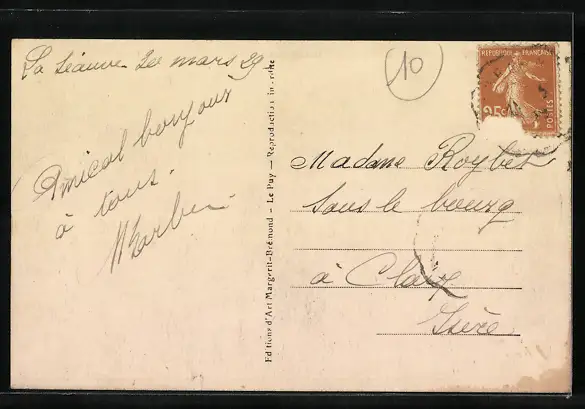 La Séauve 20 mars 29
Amical bonjour
à tous.
10
REPUBLIQUE FRANÇAISE
25c
POSTES
Madame Roybet
Sous le bourg
à Claix
Isère
Editions d'Art Margerit-Brémond - Le Puy - Reproduction interdite